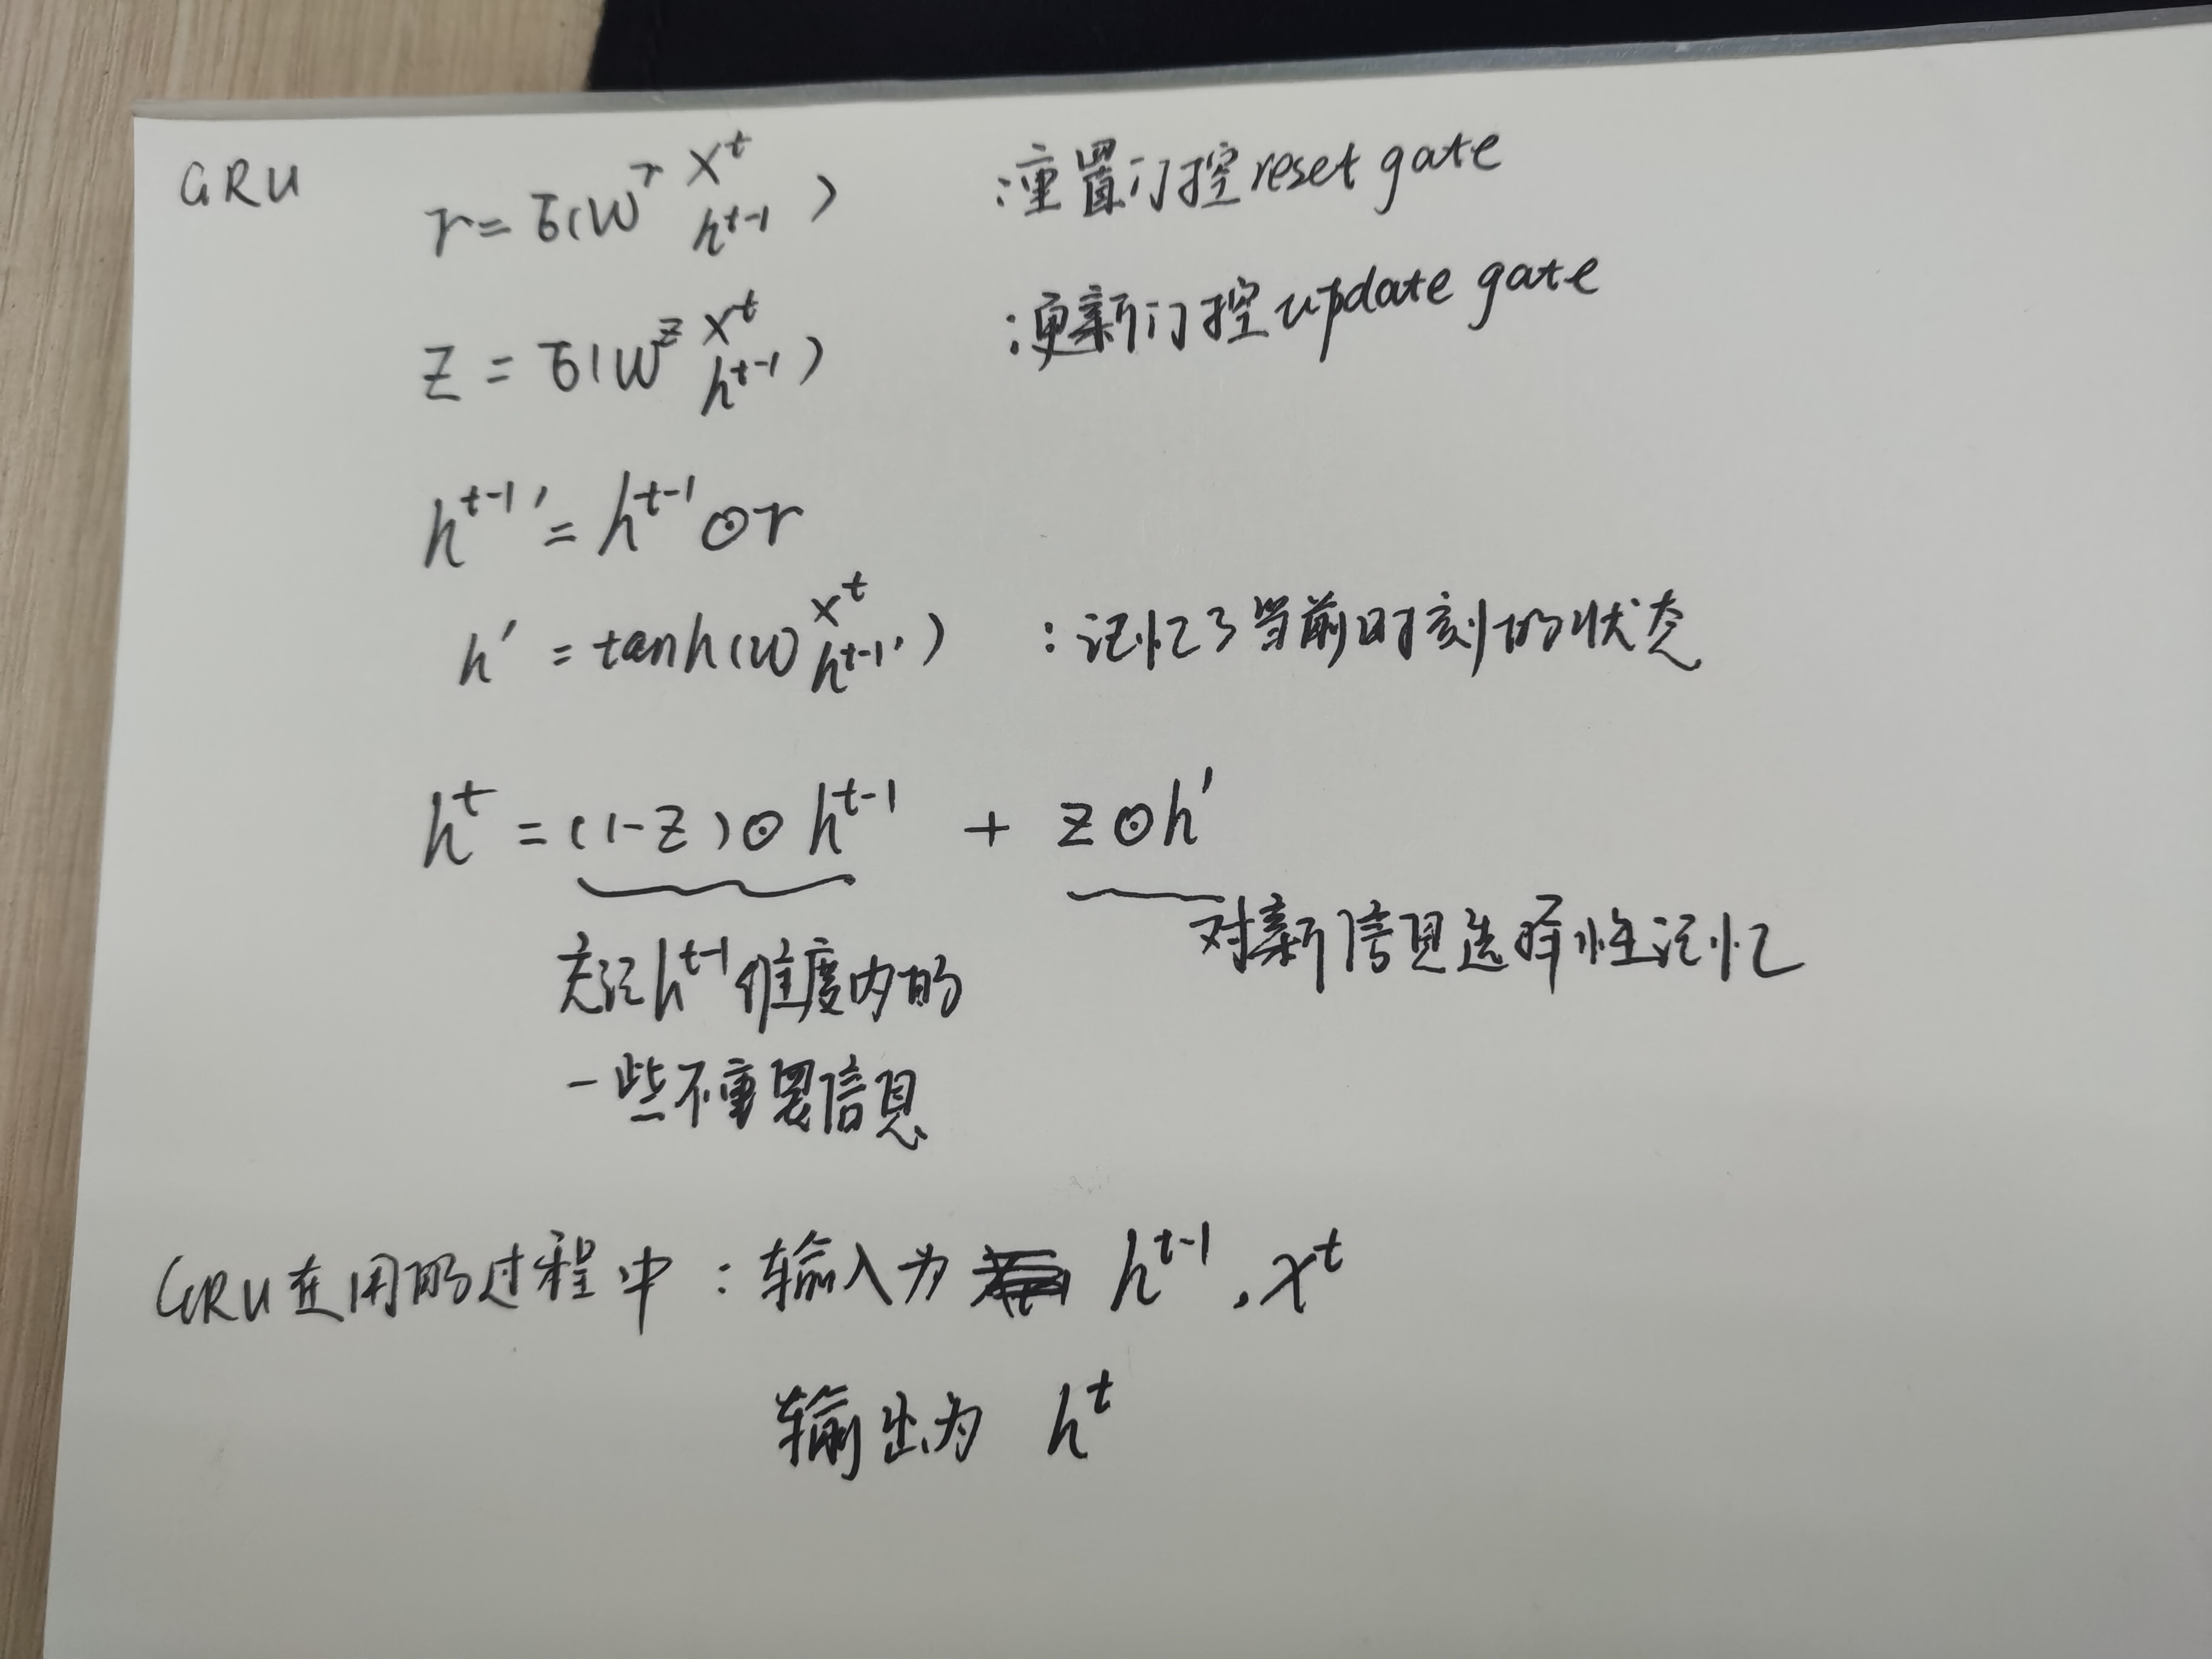 GRU
r = σ(W^r x^t h^{t-1}) :重置门控 reset gate
z = σ(W^z x^t h^{t-1}) :更新门控 update gate
h^{t-1}' = h^{t-1} ⊙ r
h' = tanh(W x^t h^{t-1}') :记忆了当前时刻的状态
h^t = (1-z) ⊙ h^{t-1} + z ⊙ h'
忘记h^{t-1}维度内的
一些不重要信息
对新信息选择性记忆
GRU在用的过程中:输入为 h^{t-1}, x^t
输出为 h^t